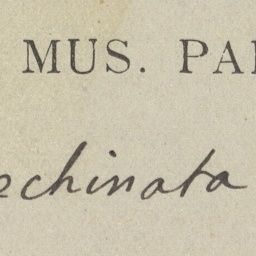 MUS. PA
echinata